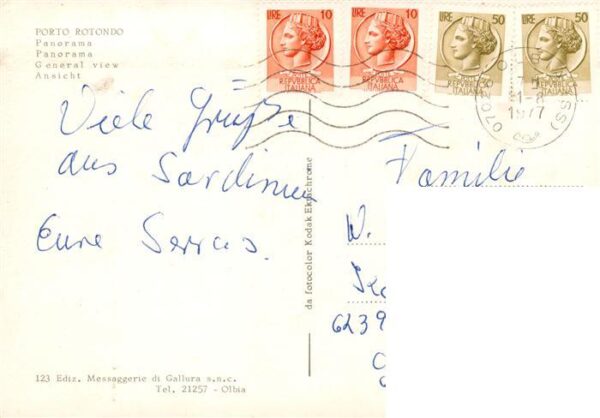 PORTO ROTONDO
Panorama
Panorama
General view
Ansicht
LIRE 10
REPVBBLICA
ITALIANA
LIRE 10
REPVBBLICA
ITALIANA
LIRE 50
REPVBBLICA
ITALIANA
LIRE 50
REPVBBLICA
ITALIANA
1977
Viele Grüße
aus Sardinien
Eure
Familie
W.
6239
da fotocolor Kodak Ektachrome
123 Ediz. Messaggerie di Gallura s.n.c.
Tel. 21257 - Olbia